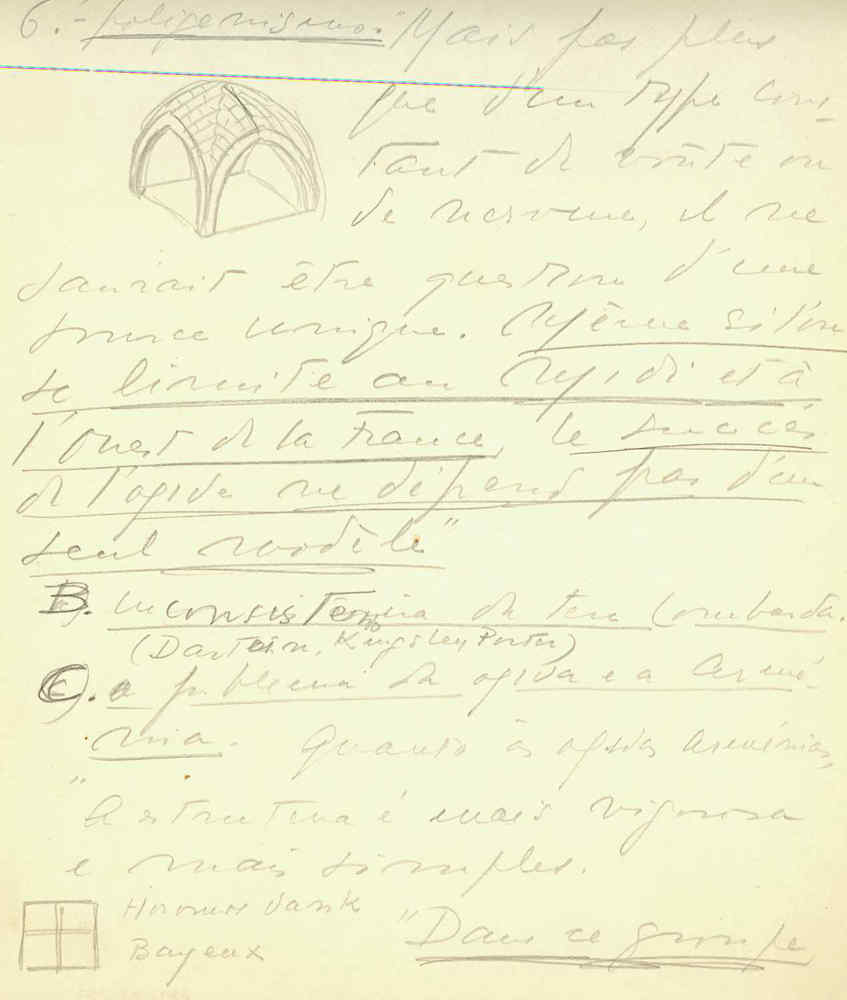 6.- poligenismo. "Mais pas plus
que d'un type cons-
tant de voûte ou
de nervure, il ne
saurait être question d'une
source unique. Même si l'on
se limite au Midi et à
l'Ouest de la France, le succès
de l'ogive ne dépend pas d'un
seul modèle"
B. Inconsistência da tese Lombarda.
(Dartein, Kingsley Porter)
C). o problema da ogiva e a Armé-
nia. Quanto às ogivas arménias,
"A estrutura é mais vigorosa
e mais simples.
Bayeux
"Dans ce groupe